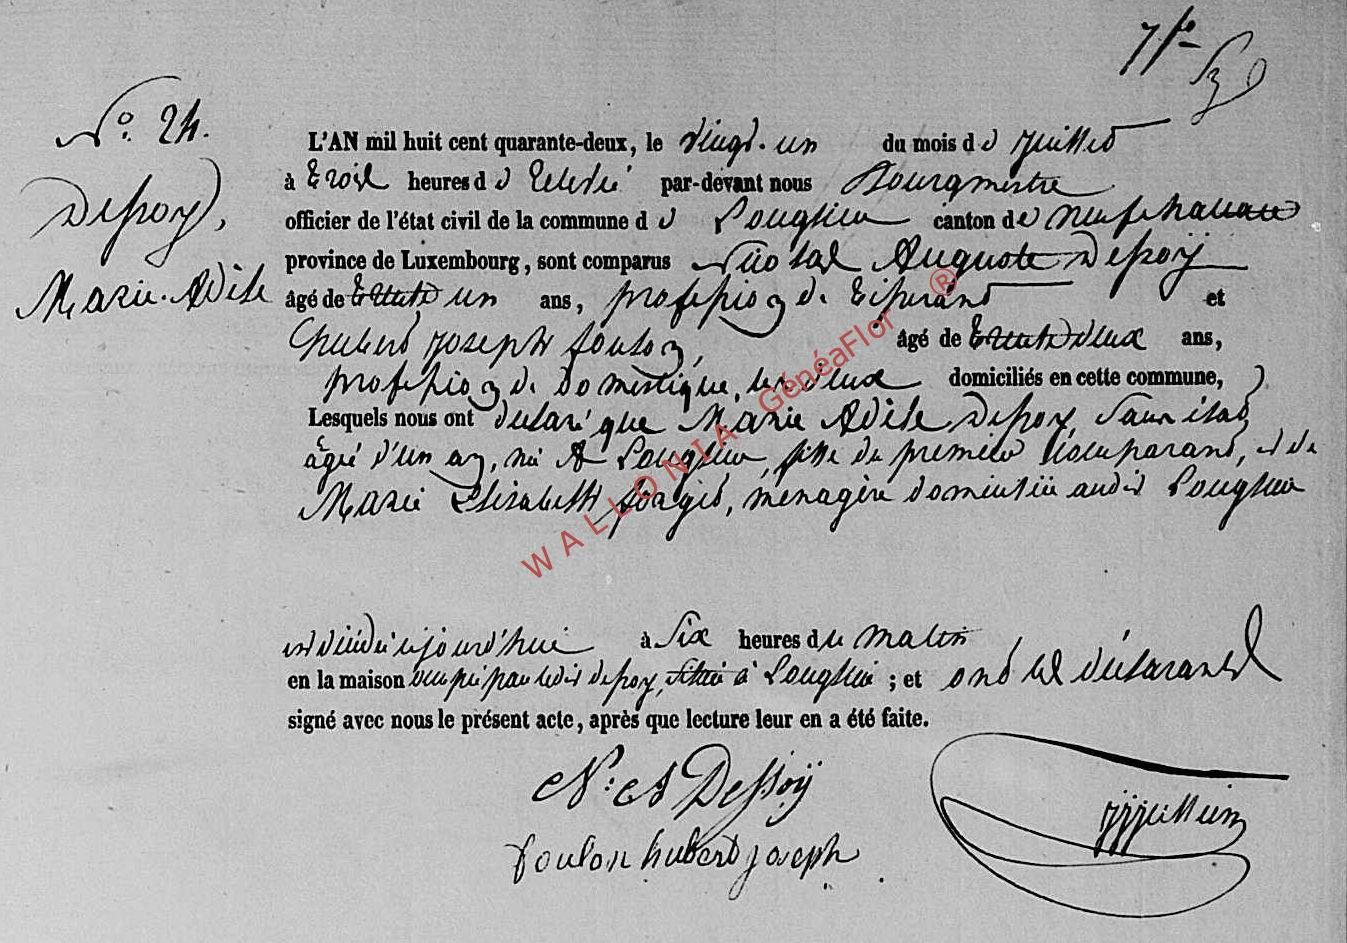 N° 24.
Dessoy,
Marie. Adèle
L'AN mil huit cent quarante-deux, le vingt-un du mois de juillet
à trois heures de relevée par-devant nous Bourgmestre
officier de l'état civil de la commune de Longlier canton de Neufchateau
province de Luxembourg, sont comparus Nicolas Auguste Dessoÿ
âgé de trente un ans, profession de tisserand et
Hubert Joseph foulon, âgé de trente deux ans,
profession de Domestique, les deux domiciliés en cette commune,
Lesquels nous ont déclaré que Marie Adèle Dessoy, Sans état
âgée d'un an, née à Longlier, fille du premier Comparant, et de
Marie Elisabeth forget, ménagère domiciliée audit Longlier
est décédée aujourd'hui à Six heures du matin
en la maison occupée par ledit dessoy, située à Longlier ; et ont les déclarants
signé avec nous le présent acte, après que lecture leur en a été faite.
N: A Dessoÿ
foulon hubert joseph
WALLONIA GénéaFlor ®